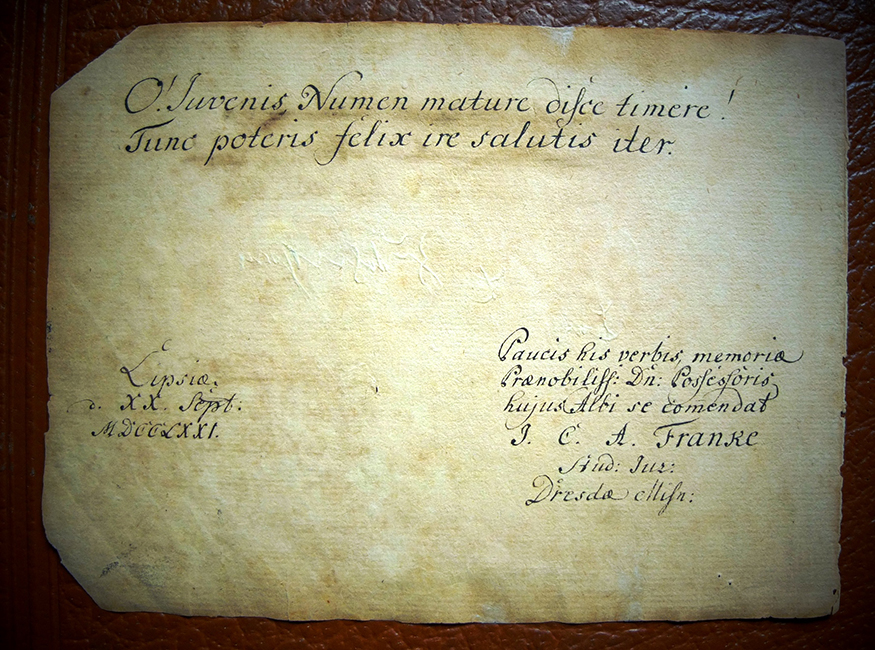 O! Juvenis, Numen mature diſce timere!
Tunc poteris felix ire salutis iter.
Lipsiæ,
d. XX. Sept:
MDCCLXXI.
Paucis his verbis, memoriæ
Prænobiliſs: Dn: Poſseſsoris
hujus Albi se com̄endat
J. C. A. Franke
Stud: Jur:
Dresdæ Miſn: